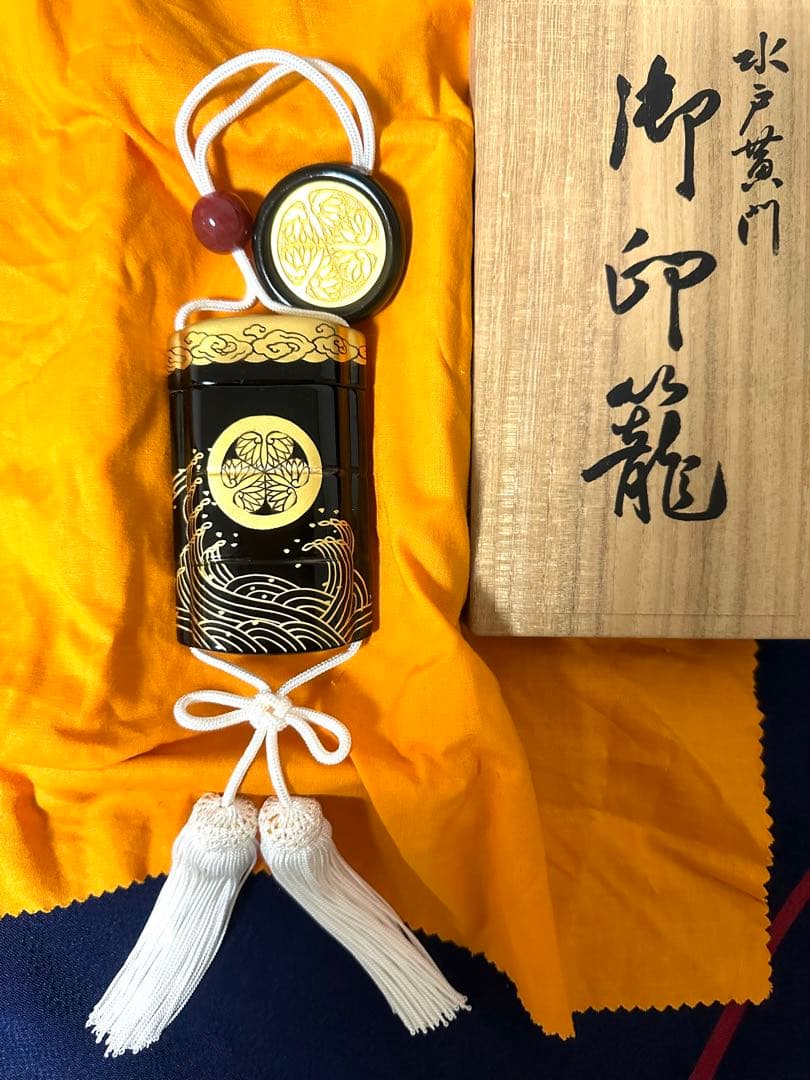 水戸黄門
御印籠